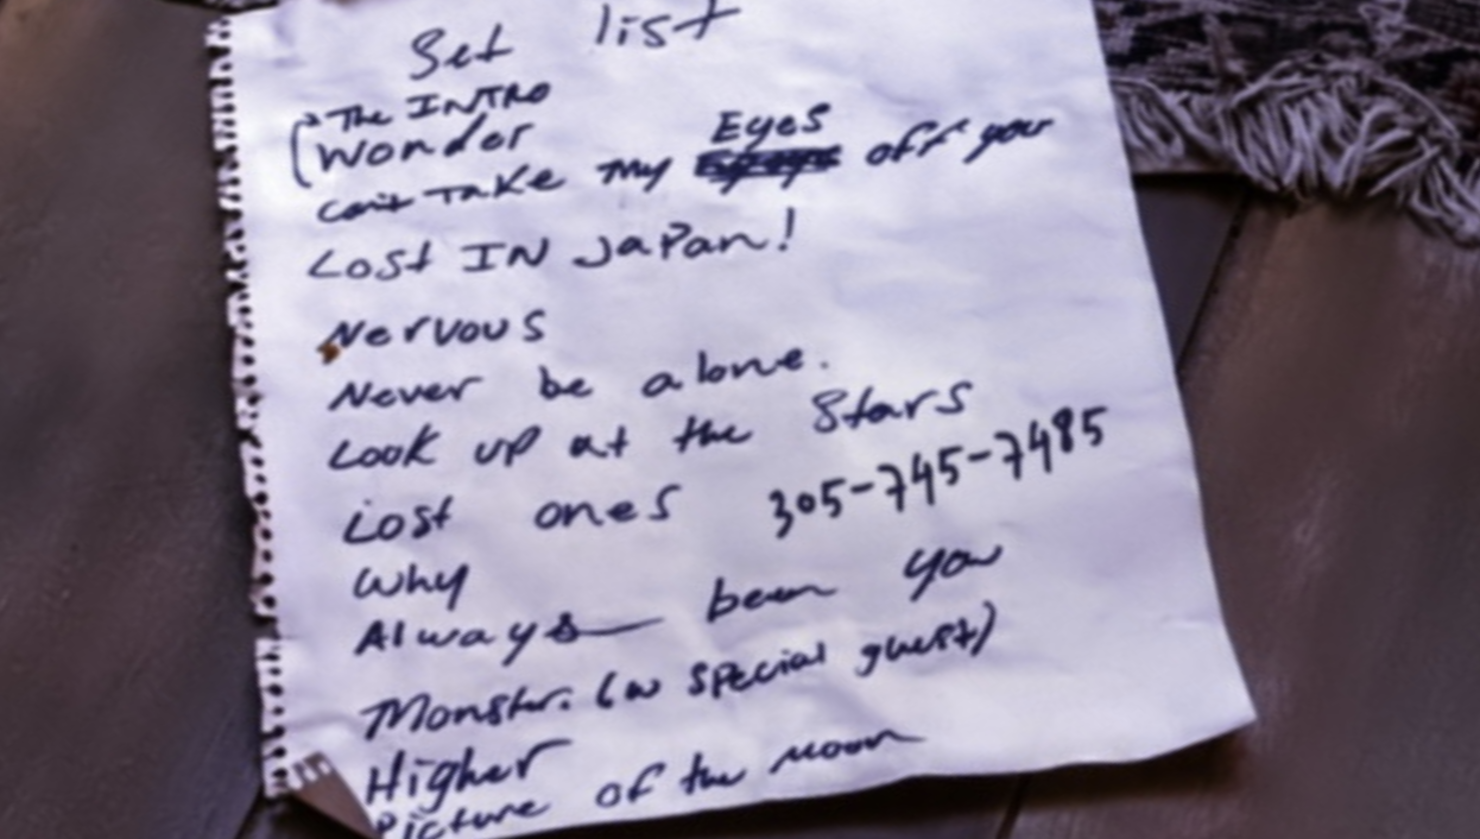 Set list
The INTRO
Wonder
can't Take my Eyes off you
Lost IN Japan!
Nervous
Never be alone.
Look up at the Stars
Lost ones 305-745-7485
Why
Always been you
Monster. (w special guest)
Higher
Picture of the moon